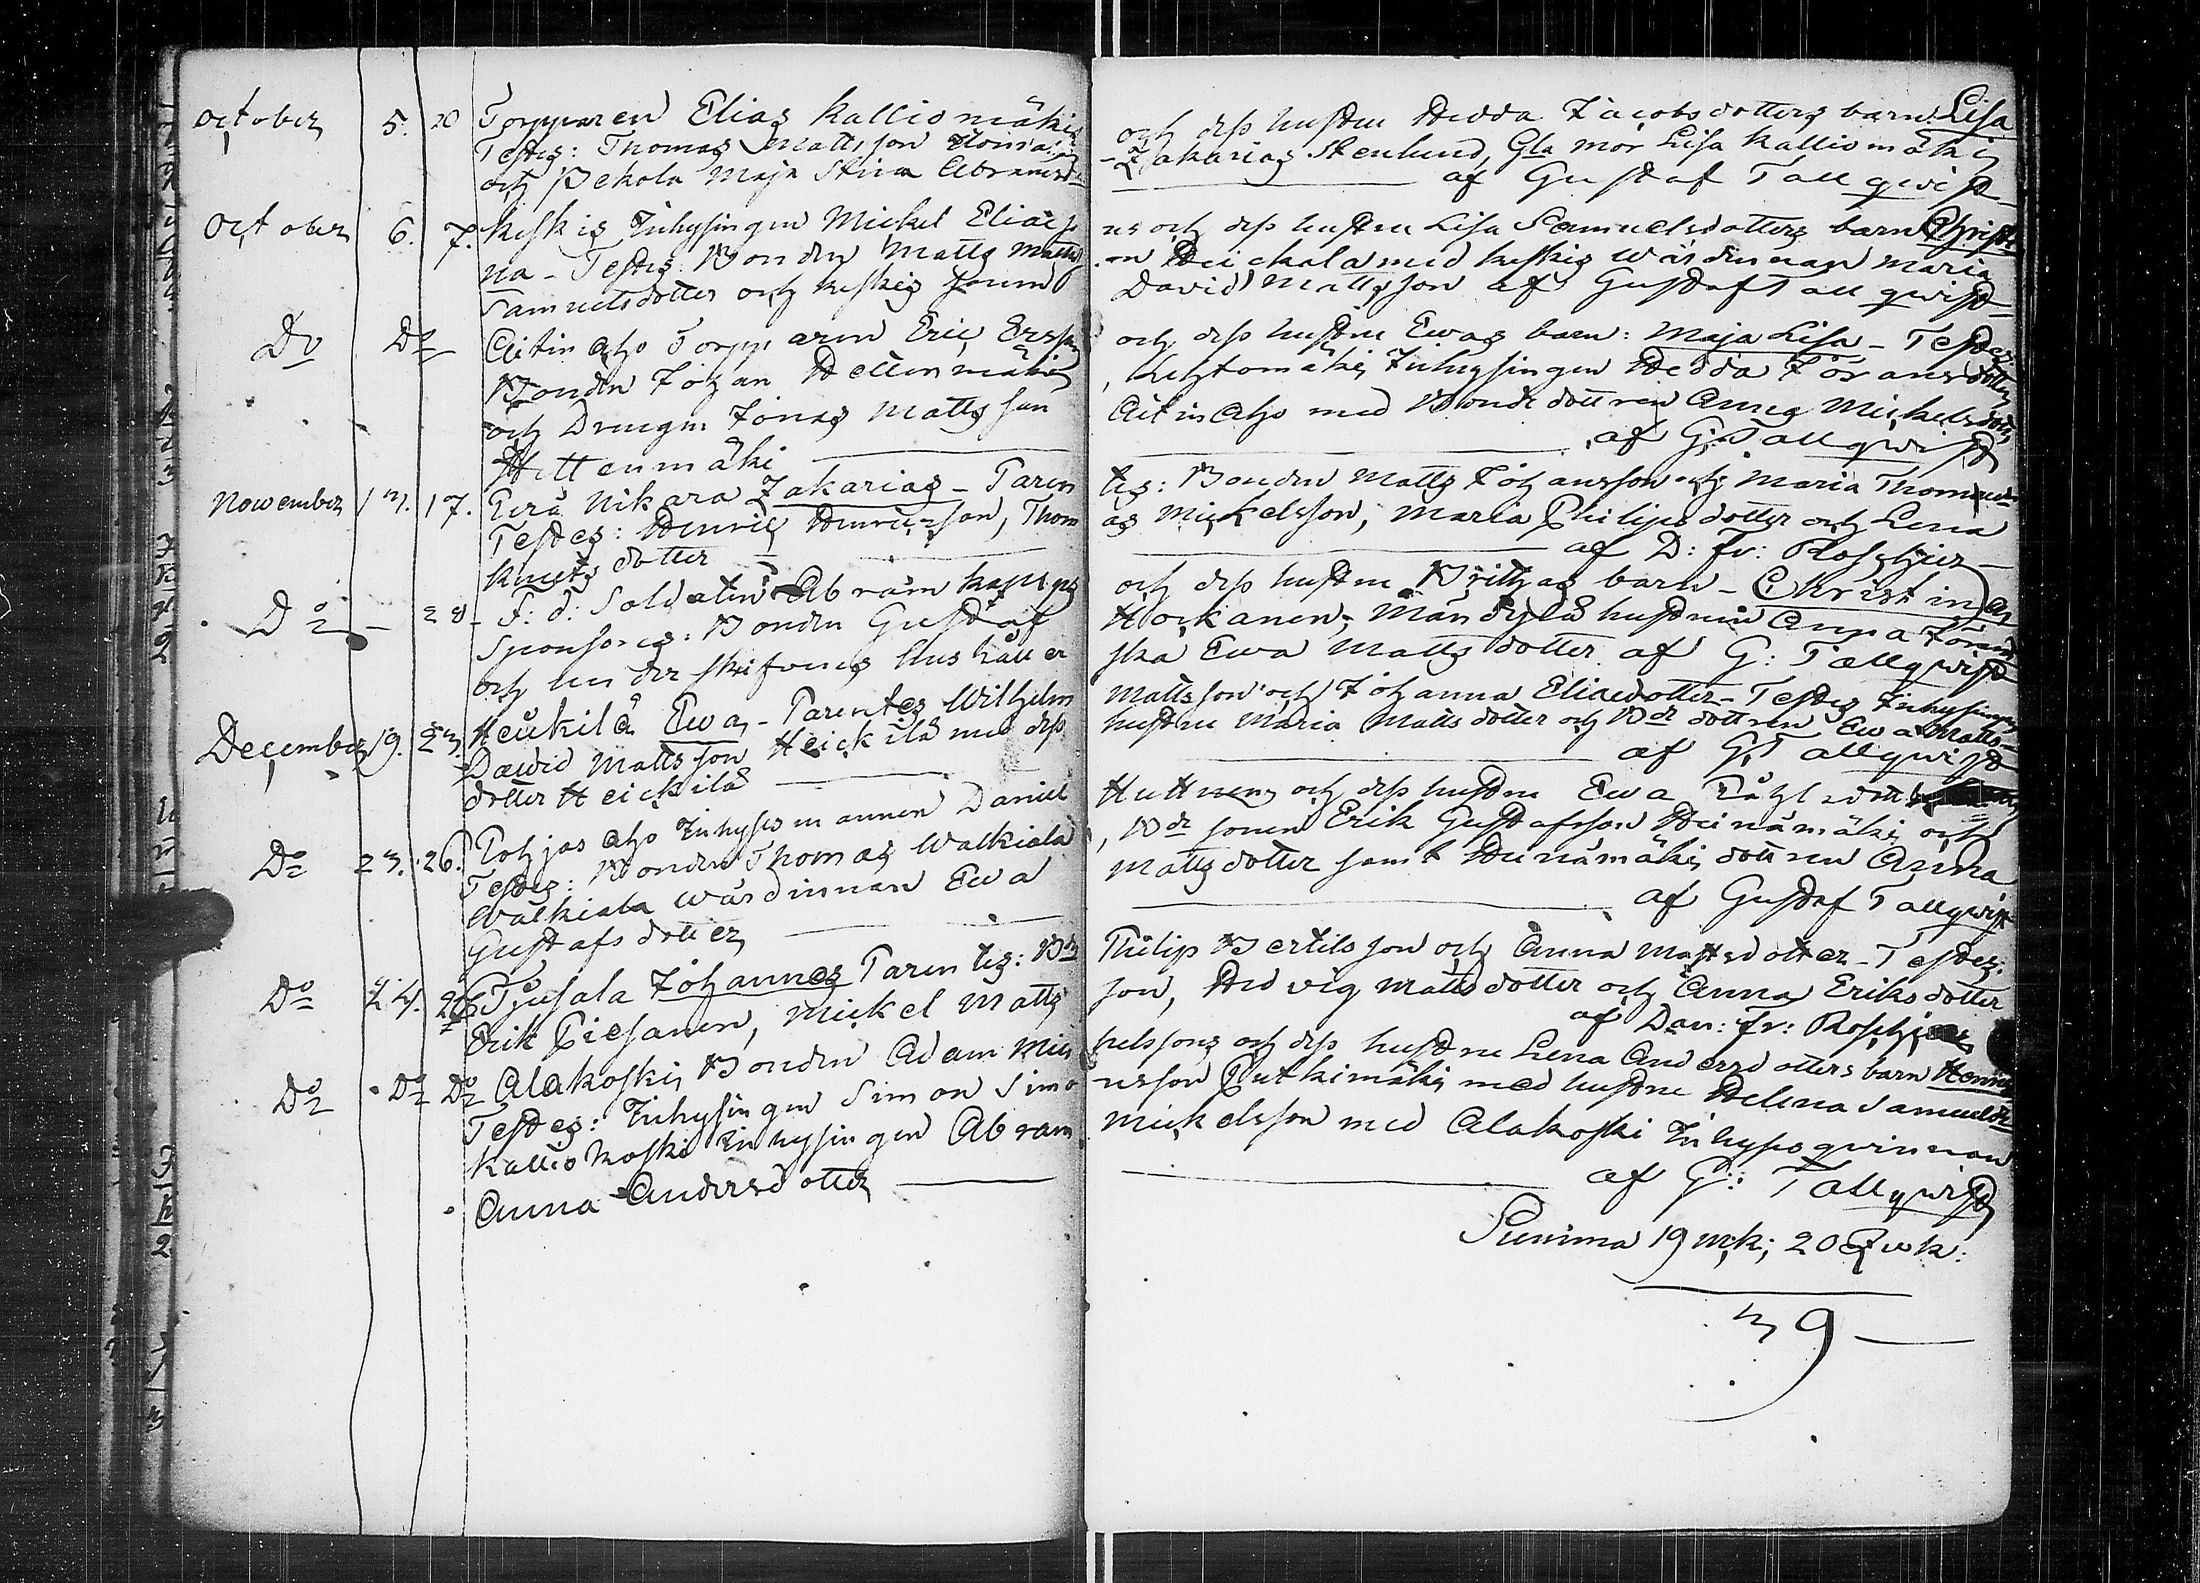 October 5. 20 Torpparen Elias Kalliomäkis
Testes: Thomas Mattsson
och Pekola Maja Stina Abramsd
October 6. 7. Keskis Inhysingen Mickel Elias
na - Testes: Bonden Matts Matts
Samuelsdotter och Keskis
Do Do Aitin aho Torpparen Eric Ersson
Bonden Johan Hettenmäki
och Drengen Jonas Mattsson
Hettenmäki
November 13. 17. Perä Nikara Zakarias - Paren
Testes: Henric Henricsson, Thom
Knuts dotter
Do - 28 F: d: Soldaten Abram
Sponsores: Bonden Gustaf
och
December 19. 23. Heikilä Ewa - Parentes Wilhelm
Dawid Mattsson Heickilä med dess
dotter Heickilä
Do 23. 26. Pohjas aho Inhyses mannen Daniel
Testes: Bonden Thomas Walkiala
Walkiala wärdinnan Ewa
Gustafs dotter
Do 24. 26 Johannes Parentes: Bd
Erik Piesanen, Mickel Matts
Do Do Do Alakoski Bonden Adam Mic
Testes: Inhysingen Simon Simo
Kalliokoski Inhysingen Abram
Anna Andersdotter
och dess hustru Hedda Jacobsdotters barn Lisa
- Zakarias Stenlund, Gla mor Lisa Kalliomäki
af Gustaf Tallqwist
och dess hustru Lisa Samuelsdotters barn Christi
med Keskis wärdinnan Maria
David Mattsson af Gustaf Tallqwist
och dess hustru Ewas barn: Maja Lisa - Testes
Lehtomäki Inhysingen Hedda Göransdotter
Aitin Aho med Bonde dottren Anna Mickelsdotter
af G: Tallqwist
tes: Bonden Matts Johansson och Maria Thomasd
as Mickelsson, Maria Philipsdotter och Lena
af D: Fr: Roschier
och dess hustru Brithas barn - Christina
hustrun Anna
ska Ewa Mattsdotter af G: Tallqwist
Mattsson och Johanna Eliaedotter - Testes Inhysingen
hustru Maria Matts dotter och Bde dottren Ewa Matts-
af G: Tallqwist
Huttunen och dess hustru Ewa
, Bde sonen Erik Gustafsson Heinämäki och
Mattsdotter samt Heinämäki dottren Anna
af Gustaf Tallqwist
Philip Bertilsson och Anna Mattsdotter - Testes:
son, Hedvig Mattsdotter och Anna Eriksdotter
af Dan: Fr: Roschier
kelssons och dess hustru Lena Andersdotters barn Henric
nsson Putkimäki med hustru Helena Samuelsdr
Mickelsson med Alakoski Inhyses qvinnan
af G: Tallqwist
Summa 19 mk; 20 qwk:
39